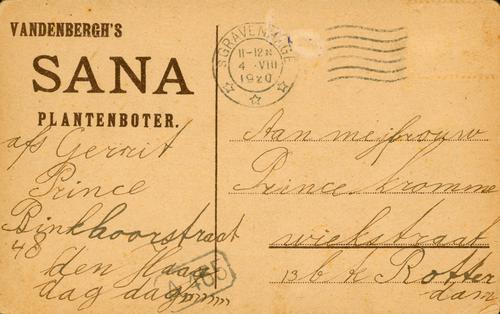 VANDENBERGH'S
SANA
PLANTENBOTER.
'S GRAVENHAGE
11-12 V
4 VIII
1920
afs Gerrit
Prince
Binkhoorstraat
48
den Haag
dag dag
Aan mejfrouw
Prince Kromme
wiekstraat
13b te Rotter
dam